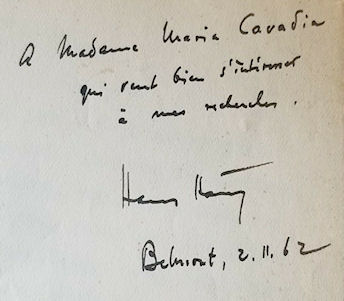 A Madame Maria Cavadia
qui veut bien s'intéresser
à mes recherches.
Hans
Belmont, 2.11.62